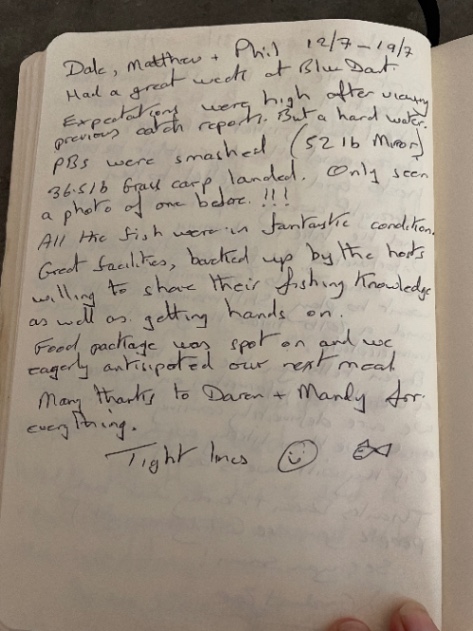 Dale, Matthew + Phil 12/7 - 19/7
Had a great week at Blue Dart.
Expectations were high after viewing
previous catch reports. But a hard water.
PBs were smashed (52 lb Mirror)
36.5lb Grass carp landed. Only seen
a photo of one before. !!!
All the fish were in fantastic condition.
Great facilities, backed up by the hosts
willing to share their fishing knowledge
as well as getting hands on.
Food package was spot on and we
eagerly antisipated our next meal
Many thanks to Daren + Mandy for
everything.
Tight lines